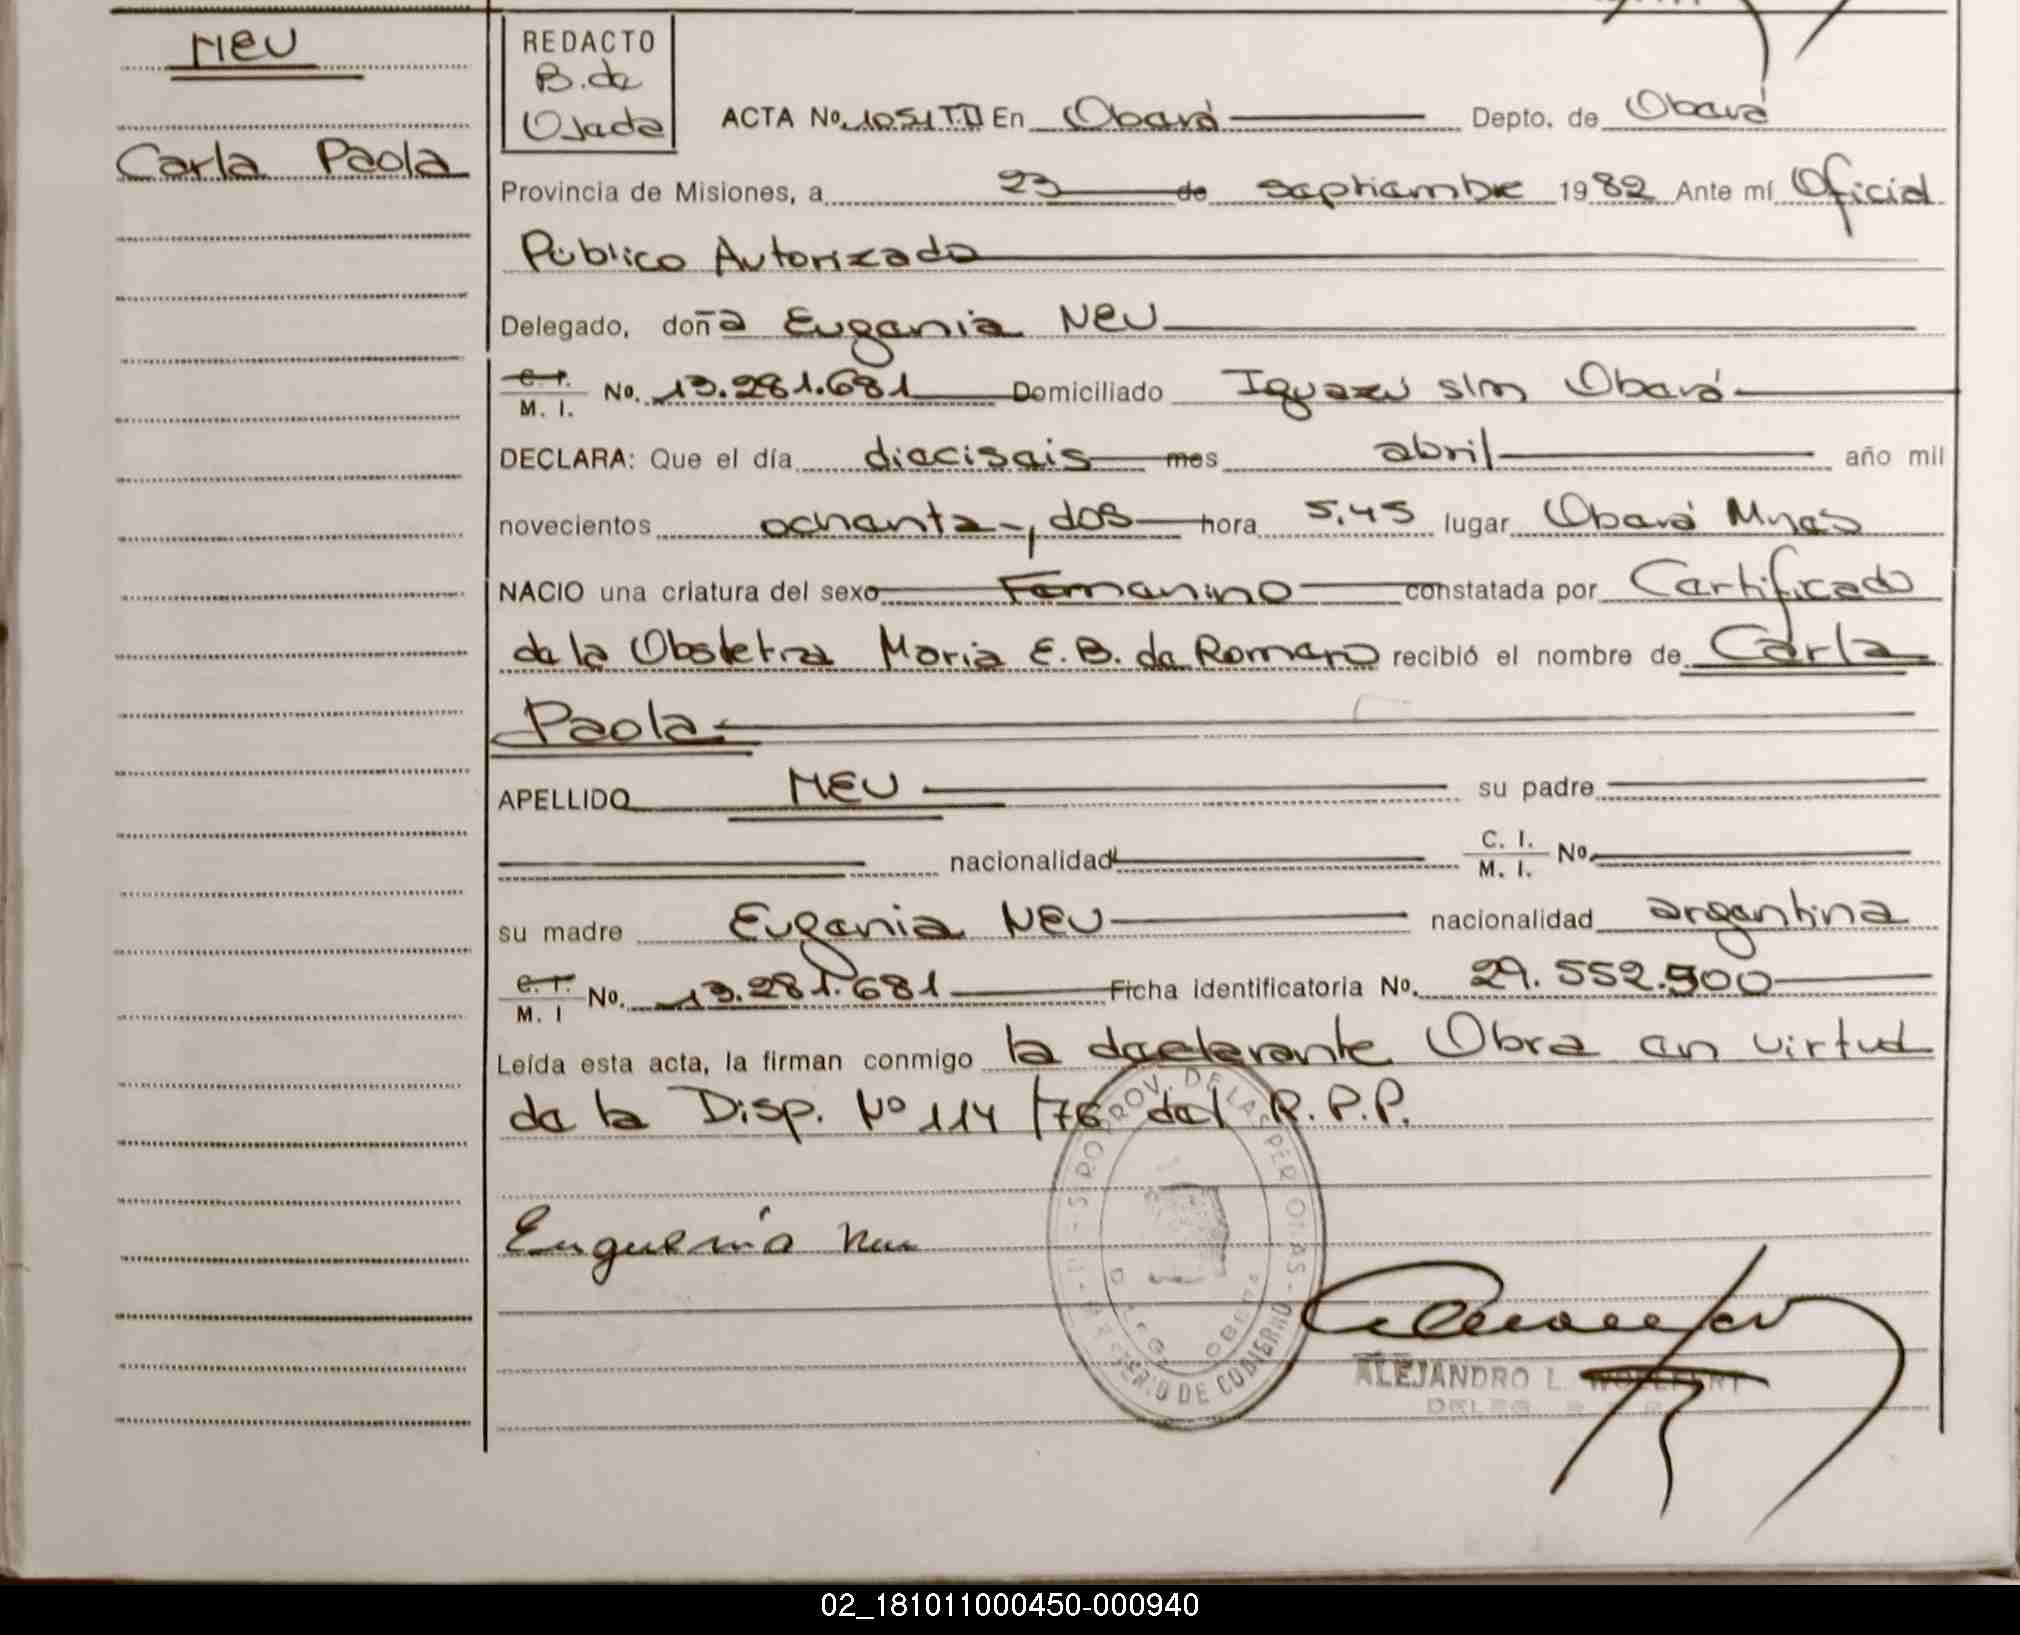 NEU
Carla Paola
REDACTO
B. de
Ojeda
ACTA No. 1051 T.II En Oberá Depto. de Oberá
Provincia de Misiones, a 23 de septiembre 1982 Ante mí Oficial
Público Autorizado
Delegado, doña Eugenia Neu
C. I. / M. I. No. 13.281.681 Domiciliado Iguazú s/n Oberá
DECLARA: Que el día dieciseis mes abril año mil
novecientos ochenta y dos hora 5,45 lugar Oberá Mnes
NACIO una criatura del sexo Femenino constatada por Certificado
de la Obstetra Maria E. B. de Romero recibió el nombre de Carla
Paola
APELLIDO NEU su padre
nacionalidad C. I. / M. I. No.
su madre Eugenia Neu nacionalidad argentina
C. I. / M. I No. 13.281.681 Ficha identificatoria No. 29.552.900
Leída esta acta, la firman conmigo la declarante Obra en virtud
de la Disp. Nº 114/76 del R.P.P.
Euguenia Neu
PROV. DE LAS PERSONAS
MINISTERIO DE GOBIERNO
OBERA
ALEJANDRO L.
02_181011000450-000940